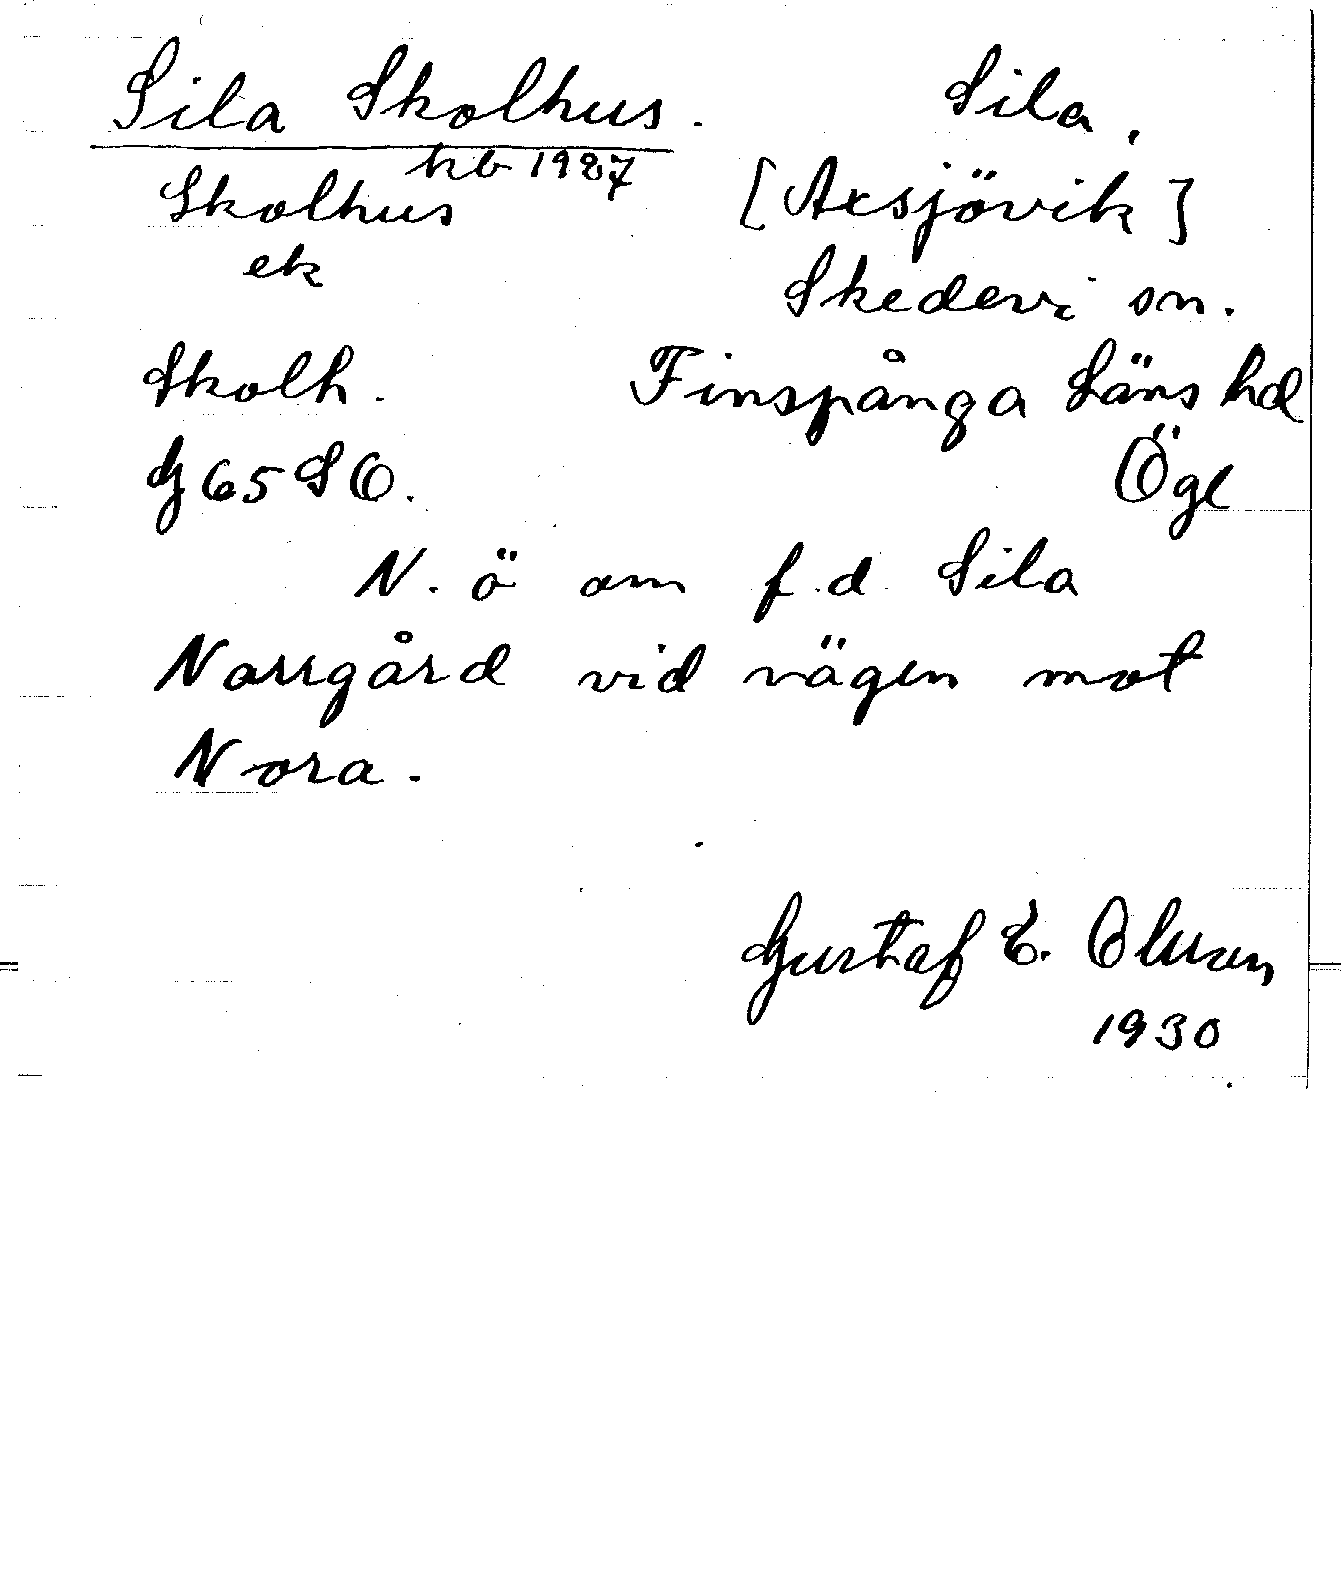 Sila Skolhus. Sila,
kb 1927
Skolhus [Axsjövik]
ek Skedevi sn.
Skolh. Finspånga Läns hd
G 65 SO. Ögl
N. ö om f.d. Sila
Norrgård vid vägen mot
Nora.
Gustaf E. Olsson
1930